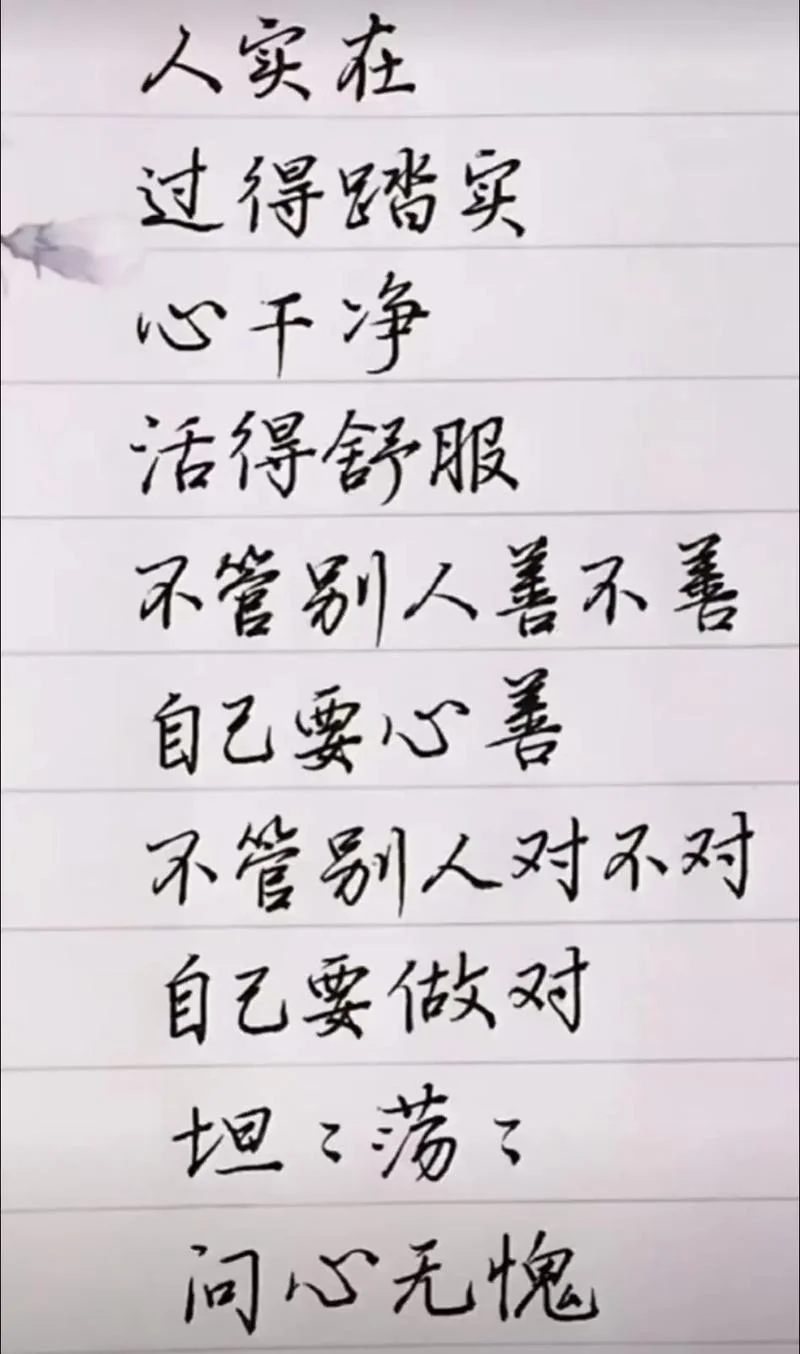 人实在
过得踏实
心干净
活得舒服
不管别人善不善
自己要心善
不管别人对不对
自己要做对
坦〻荡〻
问心无愧